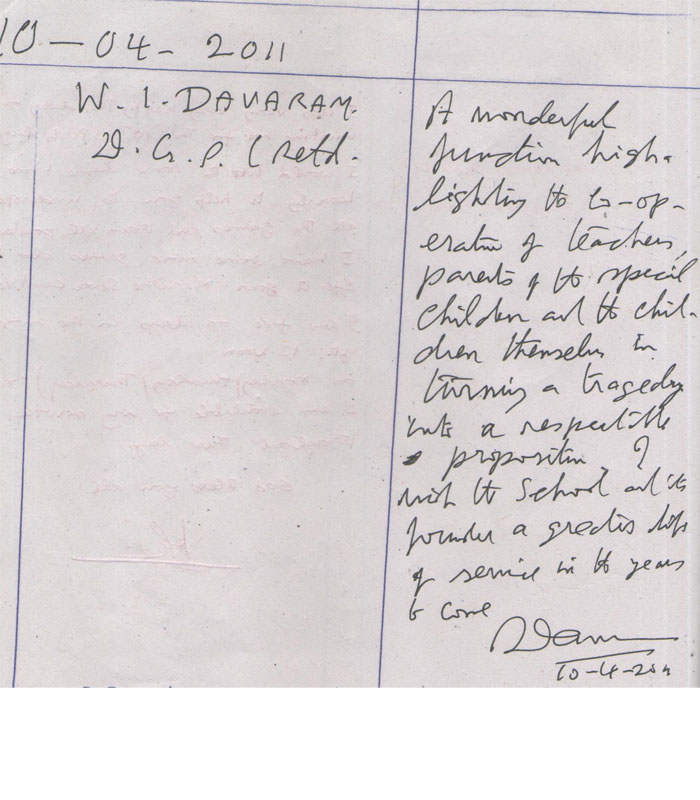 10-04-2011
W. I. DAVARAM.
D. G. P. (Retd.
A wonderful
function high-
lighting the co-op-
eration of teachers,
parents of the special
children and the chil-
dren themselves in
turning a tragedy
into a respectible
proposition. I
wish the School and its
founder a
of service in the years
to come
10-4-2011